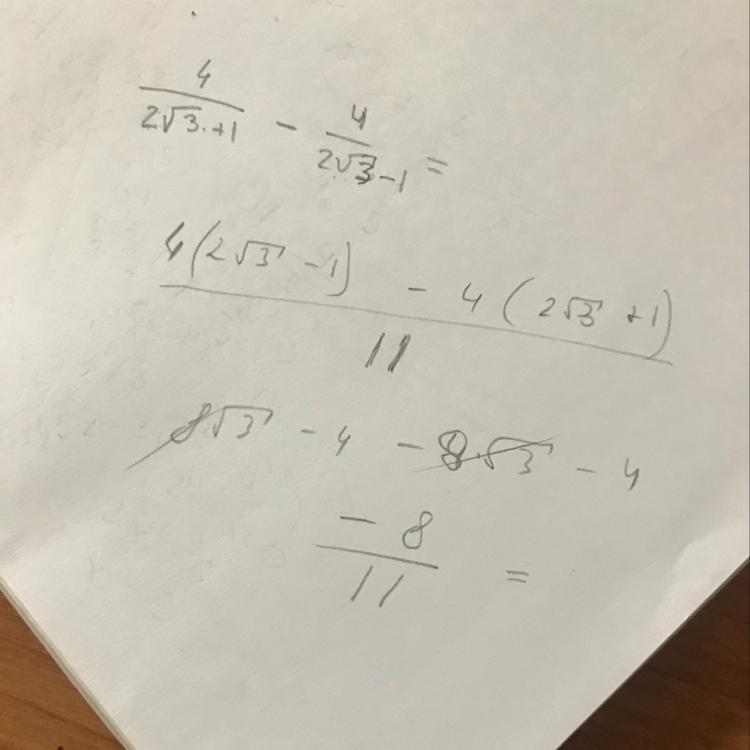 4/(2√3+1) - 4/(2√3-1) =
(4(2√3-1) - 4(2√3+1))/11
8√3 - 4 - 8√3 - 4
-8/11 =